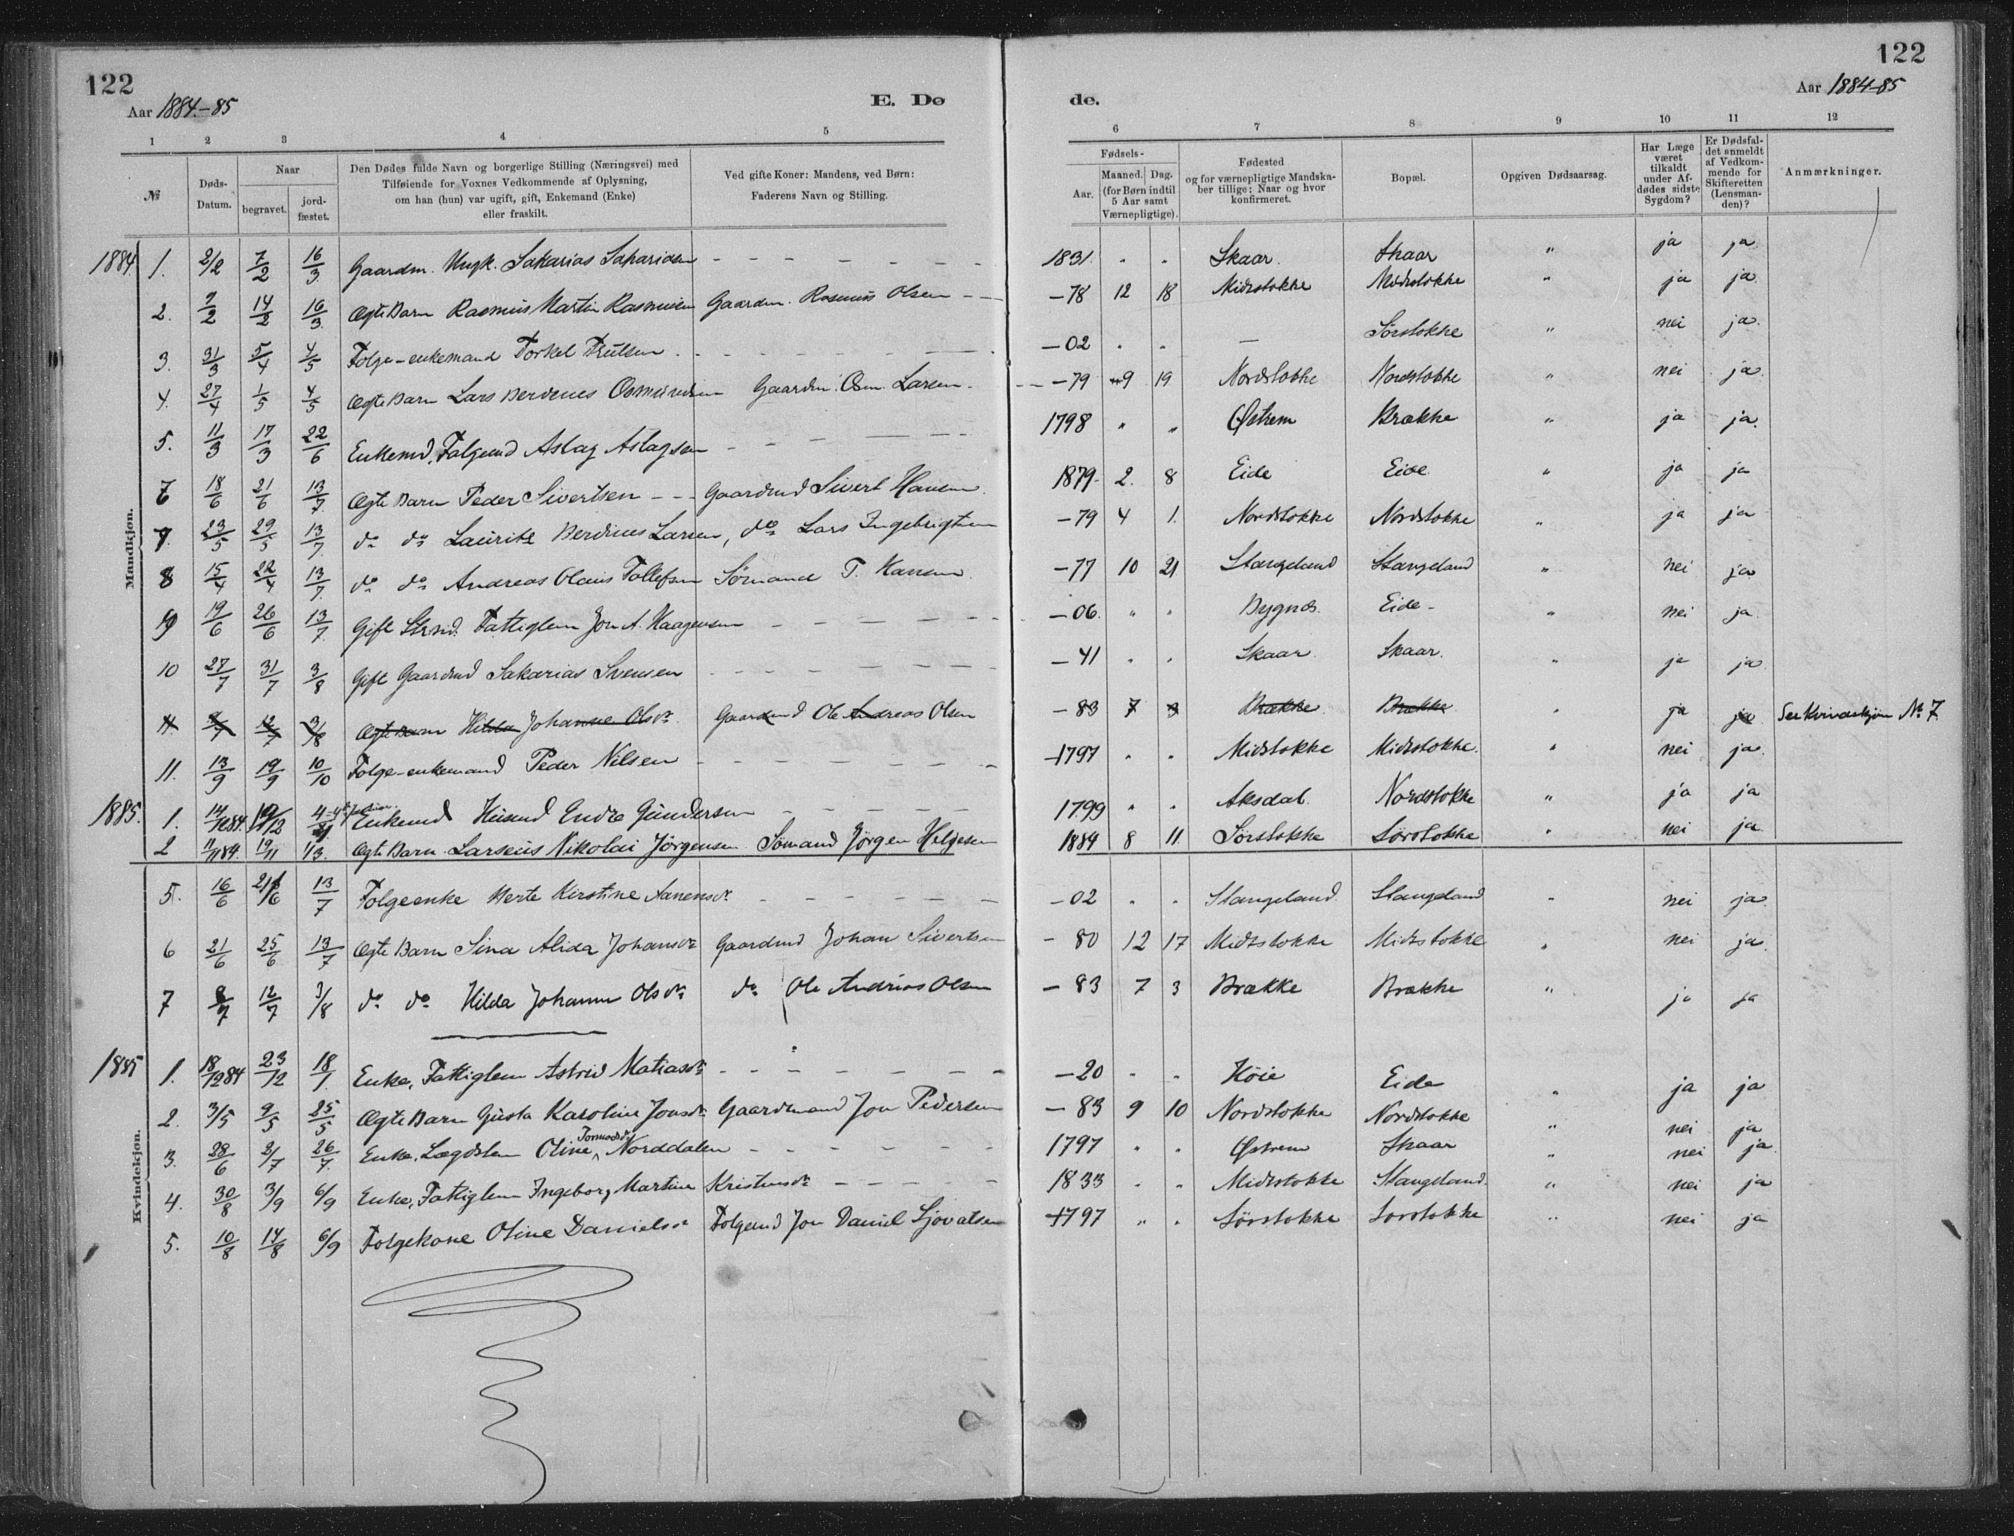 122
Aar 1884-85
E. Dø
de.
122
Aar 1884-85
1 2 3 4 5 6 7 8 9 10 11 12
№
Døds-Datum.
Naar
begravet.
jordfæstet.
Den Dødes fulde Navn og borgerlige Stilling (Næringsvei) med
Tilføiende for Voxnes Vedkommende af Oplysning,
om han (hun) var ugift, gift, Enkemand (Enke)
eller fraskilt.
Ved gifte Koner: Mandens, ved Børn:
Faderens Navn og Stilling.
Fødsels-
Aar.
Maaned. Dag.
(for Børn indtil
5 Aar samt
Værnepligtige).
Fødested
og for værnepligtige Mandska-
ber tillige: Naar og hvor
konfirmeret.
Bopæl.
Opgiven Dødsaarsag.
Har Læge
været
tilkaldt
under Af-
dødes sidste
Sygdom?
Er Dødsfal-
det anmeldt
af Vedkom-
mende for
Skifteretten
(Lensman-
den)?
Anmærkninger.
Mandkjøn.
1884 1. 2/2 7/2 16/3 Gaardm. Ungk. Sakarias Sakariasen - - - 1831. " " Skaar. Skaar " ja ja
2. 9/2 14/2 16/3 Ægte Barn Rasmus Martin Rasmusen Gaardm. Rasmus Olsen - -78 12 18 Midtstokke Midtstokke " ja ja.
3. 31/3 5/4 4/5 Folge-enkemand Torkel Trulsen - - - -02 " " — Sørstokke " nei ja.
4. 27/4 1/5 4/5 Ægte Barn Lars Berdenes Osmundsen Gaardm. Osm. Larsen - -79 9 19 Nordstokke Nordstokke " nei ja.
5. 11/3 17/3 22/6 Enkemd, Folgemd Aslag Aslagsen - - - 1798 " " Østrem Brække " ja ja.
6 18/6 21/6 13/7 Ægte Barn Peder Sivertsen - - Gaardmd Sivert Hansen 1879- 2. 8 Eide Eide " ja ja
7. 23/5 29/5 13/7 do do Lauritz Berdines Larsen, do Lars Ingebrigtsen -79 4 1. Nordstokke Nordstokke " ja ja
8 15/4 22/4 13/7 do do Andreas Olaus Tollefsen Sømand T. Hansen -77 10 21 Stangeland Stangeland " nei ja
9 19/6 26/6 13/7 Gift Strmd. Fattiglem Jon A. Haagensen - - - -06. " " Bygnes Eide - " nei ja
10 27/7 31/7 3/8 Gift Gaardmd Sakarias Svensen - - - -41 " " Skaar Skaar. " ja ja
11 8/7 12/7 3/8 Ægte Barn Hilda Johanne Olsdr. Gaardmd Ole Andreas Olsen -83 7 3 Brække Brække " ja ja Se Kvindekjøn No 7
11. 13/9 19/9 10/10 Folge-enkemand Peder Nilsen - - - 1797 " " Midstokke Midstokke. " nei ja.
1885. 1. 14/12 84 19/12 4/1 Enkemd Huusmd Endre Gundersen - - - 1799 " " Aksdal. Nordstokke " ja ja
2 11/11 84. 19/11 1/3. Ægte Barn Larseus Nikolai Jørgensen Sømand Jørgen Helgesen 1884 8 11. Sørstokke Sørstokke " nei ja
Kvindekjøn.
5. 16/6 21/6 13/7 Folgeenke Berte Kirstine Aanensdr - - - -02 " " Stangeland Stangeland " nei ja.
6 21/6 25/6 13/7 Ægte Barn Sina Alida Johansdr Gaardmd Johan Sivertsen -80 12 17 Midtstokke Midtstokke " nei ja.
7 8/7 12/7 3/8 do do Hilda Johanne Olsdr. do Ole Andrias Olsen -83 7 3 Brække Brække " ja ja
1885 1. 18/12 84 23/12 18/1. Enke, Fattiglem Astrid Matiasdr. - - - -20 " " Høie Eide " ja ja
2. 3/5 9/5 25/5 Ægte Barn Gusta Karoline Jonsdr. Gaardmand Jon Pedersen -83 9 10 Nordstokke Nordstokke " nei ja
3. 28/6 2/7 26/7. Enke, Lægdslem Oline Norddalen - - - 1797 " " Østrem Skaar " nei ja.
4. 30/8 3/9 6/9 Enke, Fattiglem Ingeborg Martine Kristensdr - - - 1833 " " Midtstokke Stangeland. " nei ja
5. 10/8 14/8 6/9 Folgekone Oline Danielsdr Folgemd Jon Daniel Sjovatsen 1797 " " Sørstokke Sørstokke " nei ja